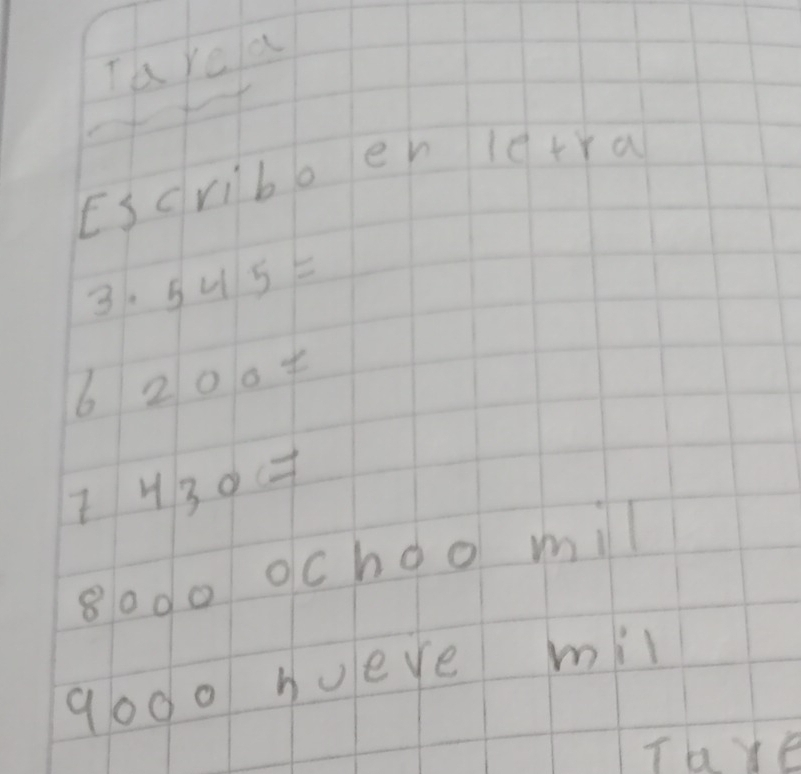 Tarea
Escribo en letra
3.545=
6200=
7430=
8000 ochoo mil
9000 nueve mil
Tare